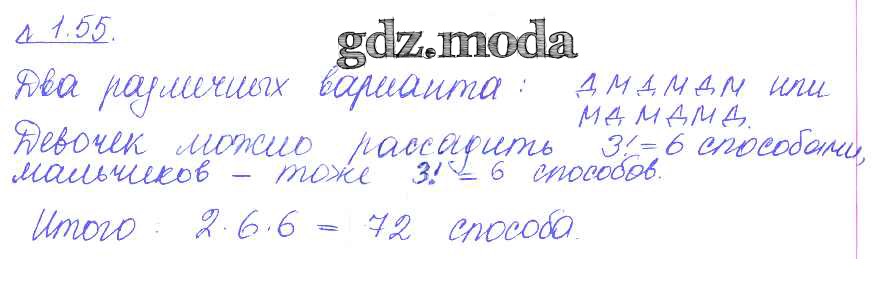 № 1.55.
gdz.moda
Два различных варианта: ДМДМДМ или
МДМДМД.
Девочек можно рассадить 3! = 6 способами,
мальчиков – тоже 3! = 6 способов.
Итого: 2·6·6 = 72 способа.